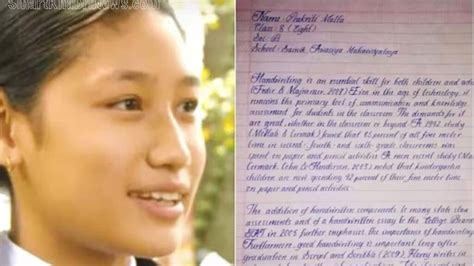 smartkhabrinews.com
Name: Prakriti Malla
Class: 8 (Eight)
Sec: 'B'
School: Sainik Awasiya Mahavidyalaya
Handwriting is an essential skill for both children and adu
(Feder & Majnemer, 2007). Even in the age of technology, it
remains the primary tool of communication and knowledge
assessment for students in the classroom. The demands for it
are great, whether in the classroom or beyond. A 1992 study
(McHale & Cermak) found that 85 percent of all fine motor
time in second- fourth- and sixth-grade classrooms was
spent on paper and pencil activities. A more recent study (Ma
Cermak, Cohn & Henderson, 2003) noted that kindergarten
children are now spending 42 percent of their fine motor time
on paper and pencil activities.
The addition of handwritten components to many state stan
assessments and of a handwritten essay to the College Board
SAT in 2005 further emphasize the importance of handwriting
Furthermore, good handwriting is important long after
graduation in Script and Scribble (2009), Florey writes in